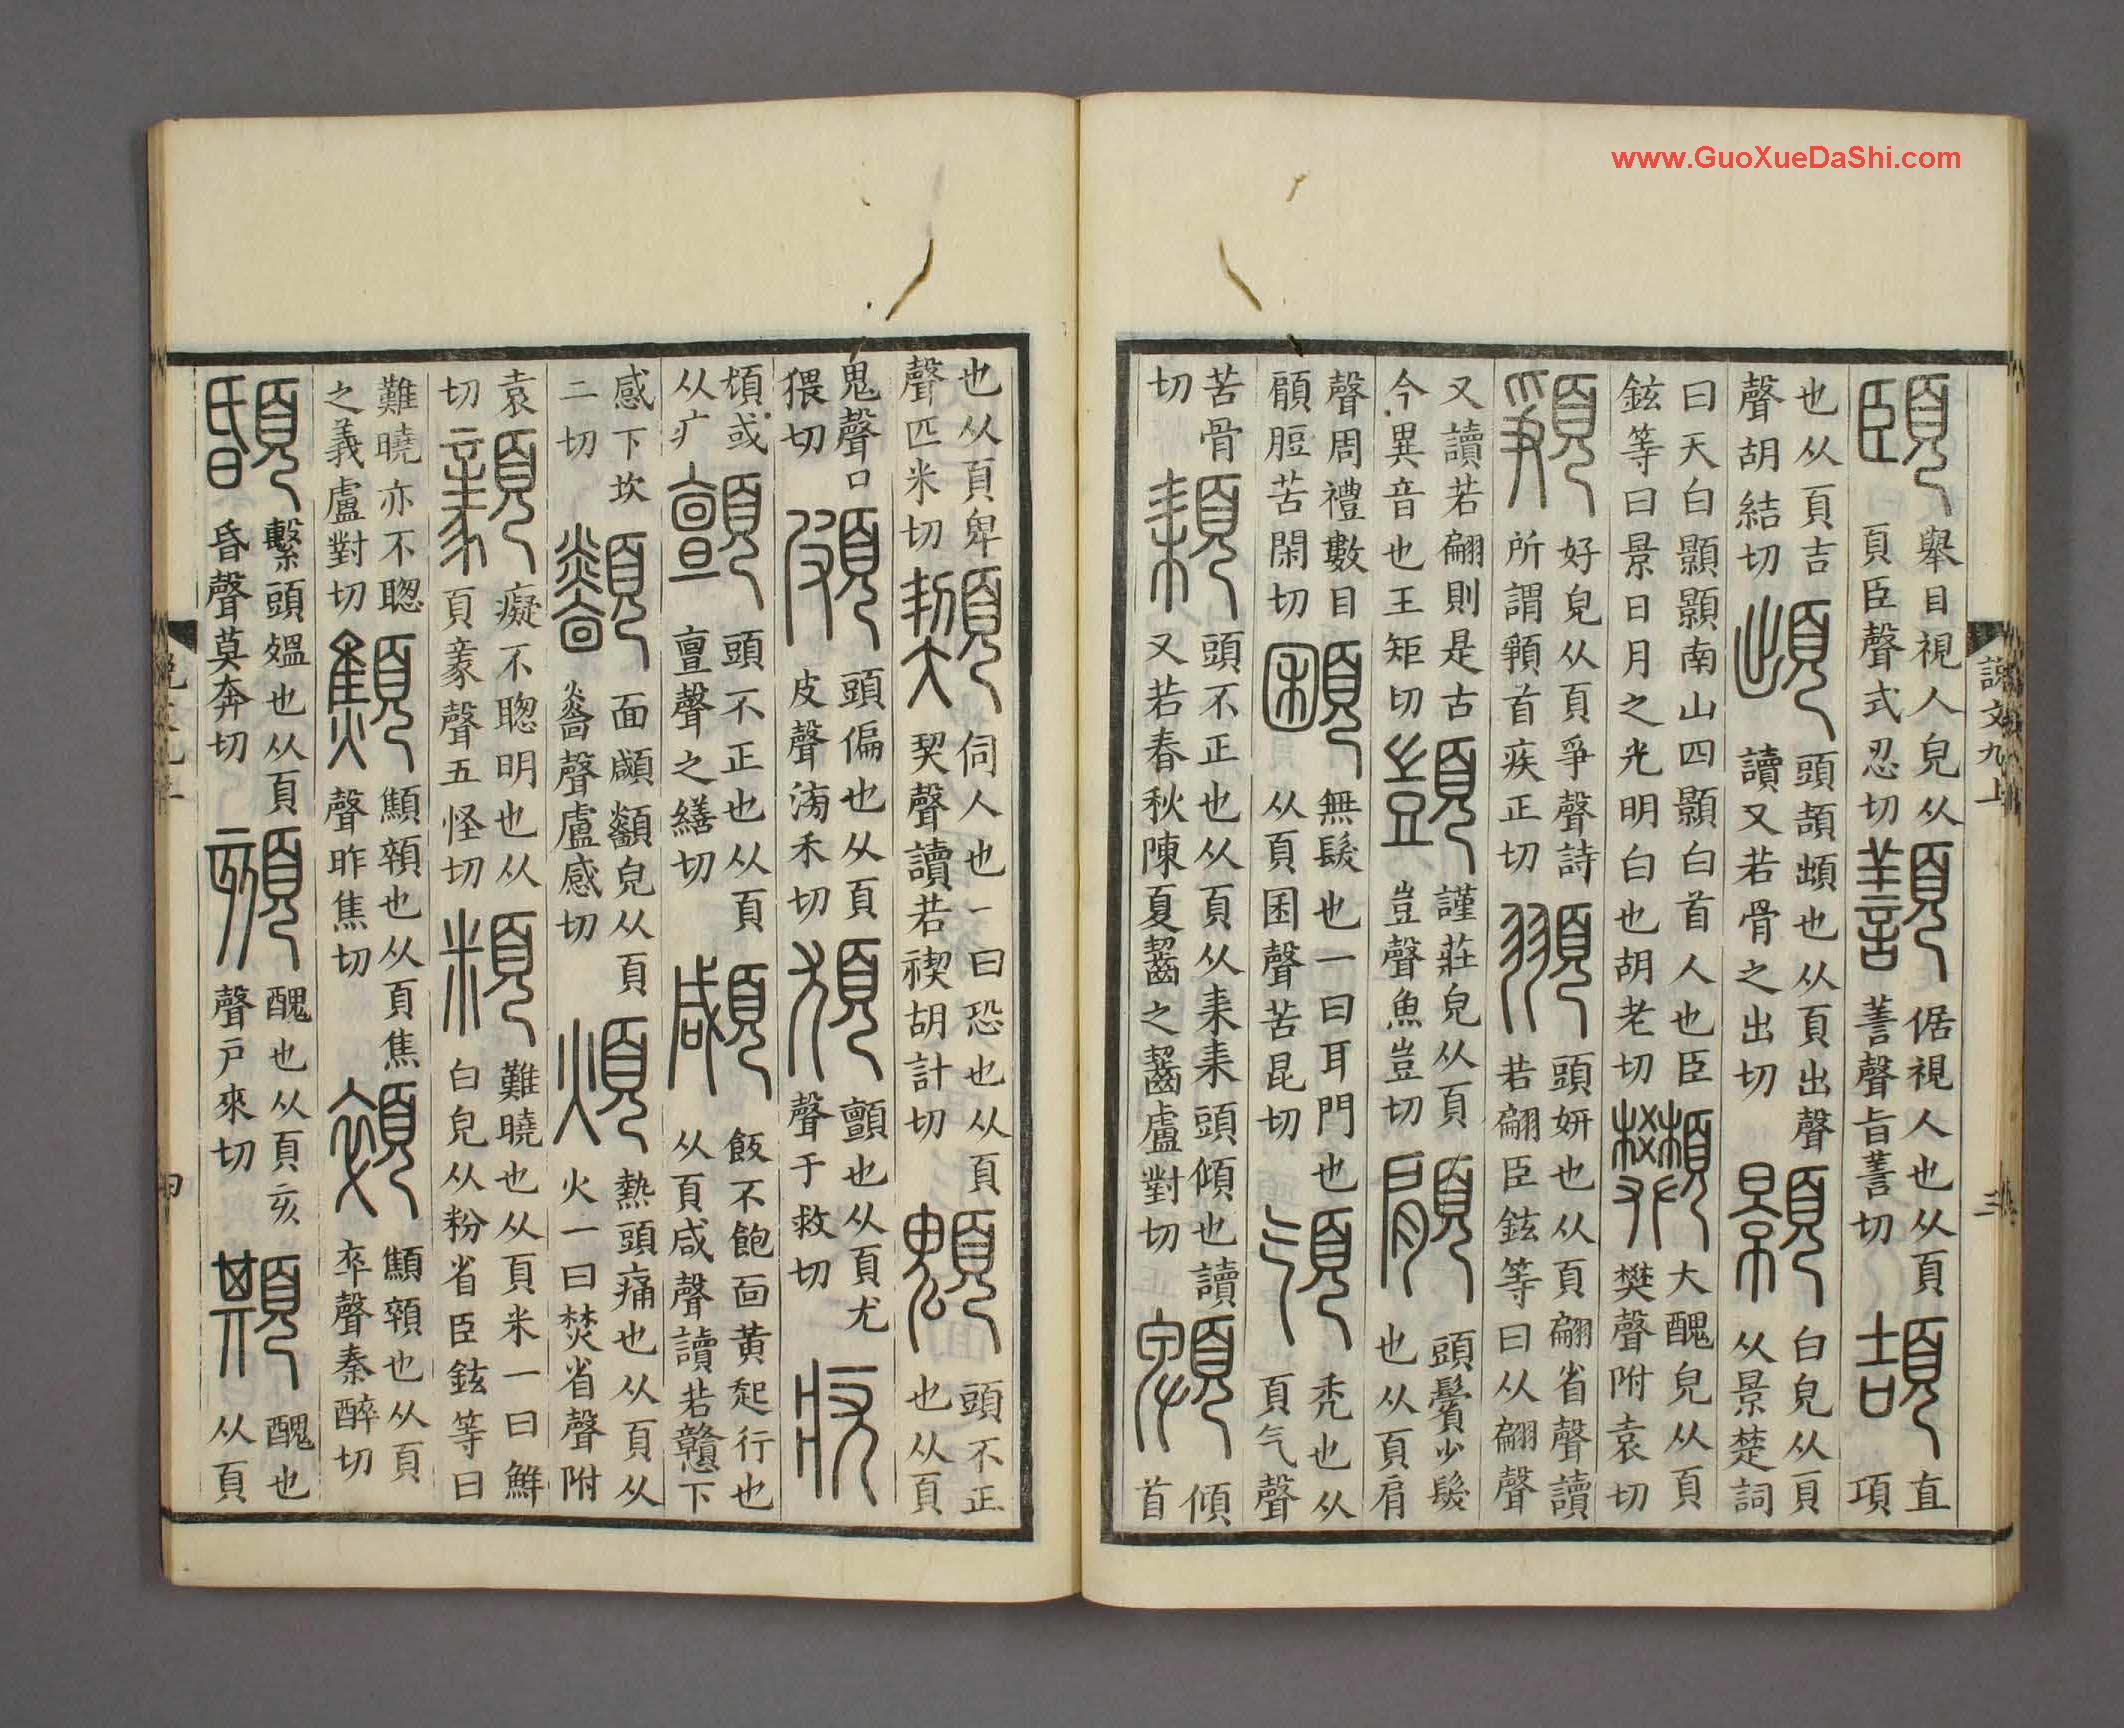 舉目視人皃从頁臣聲式忍切 倨視人也从頁善聲旨善切 頡 直項
也从頁吉聲胡結切 䪼 頭頡䪼也从頁出聲讀又若骨之出切 顥 白皃从頁从景楚詞
曰天白顥顥南山四顥白首人也臣鉉等曰景日月之光明白也胡老切 大醜皃从頁樊聲附袁切
頱 好皃从頁爭聲詩所謂頱首疾正切 頭妍也从頁翩省聲讀若翩臣鉉等曰从翩聲
又讀若翩則是古今異音也王矩切 顗 謹莊皃从頁豈聲魚豈切 顅 頭鬢少髮也从頁肩
聲周禮數目顅脰苦閑切 顐 無髮也一曰耳門也从頁困聲苦昆切 秃也从頁气聲
苦骨切 頛 頭不正也从頁从耒耒頭傾也讀又若春秋陳夏齧之齧盧對切 傾首
說文九上 三
也从頁卑聲匹米切 䫔 伺人也一曰恐也从頁契聲讀若禊胡計切 頭不正也从頁
鬼聲口猥切 頗 頭偏也从頁皮聲滂禾切 顫也从頁尤聲于救切
或从疒 顫 頭不正也从頁亶聲之繕切 顑 飯不飽面黃起行也从頁咸聲讀若戇下
感下坎二切 顲 面顑顲皃从頁聲盧感切 煩 熱頭痛也从頁从火一曰焚省聲附
袁切 顡 癡不聰明也从頁豙聲五怪切 䫋 難曉也从頁米一曰鮮白皃从粉省臣鉉等曰
難曉亦不聰之義盧對切 顦 顦顇也从頁焦聲昨焦切 顇 顦顇也从頁卒聲秦醉切
繫頭殟也从頁昏聲莫奔切 頦 醜也从頁亥聲戶來切 䫏 醜也从頁
四
www.GuoXueDaShi.com